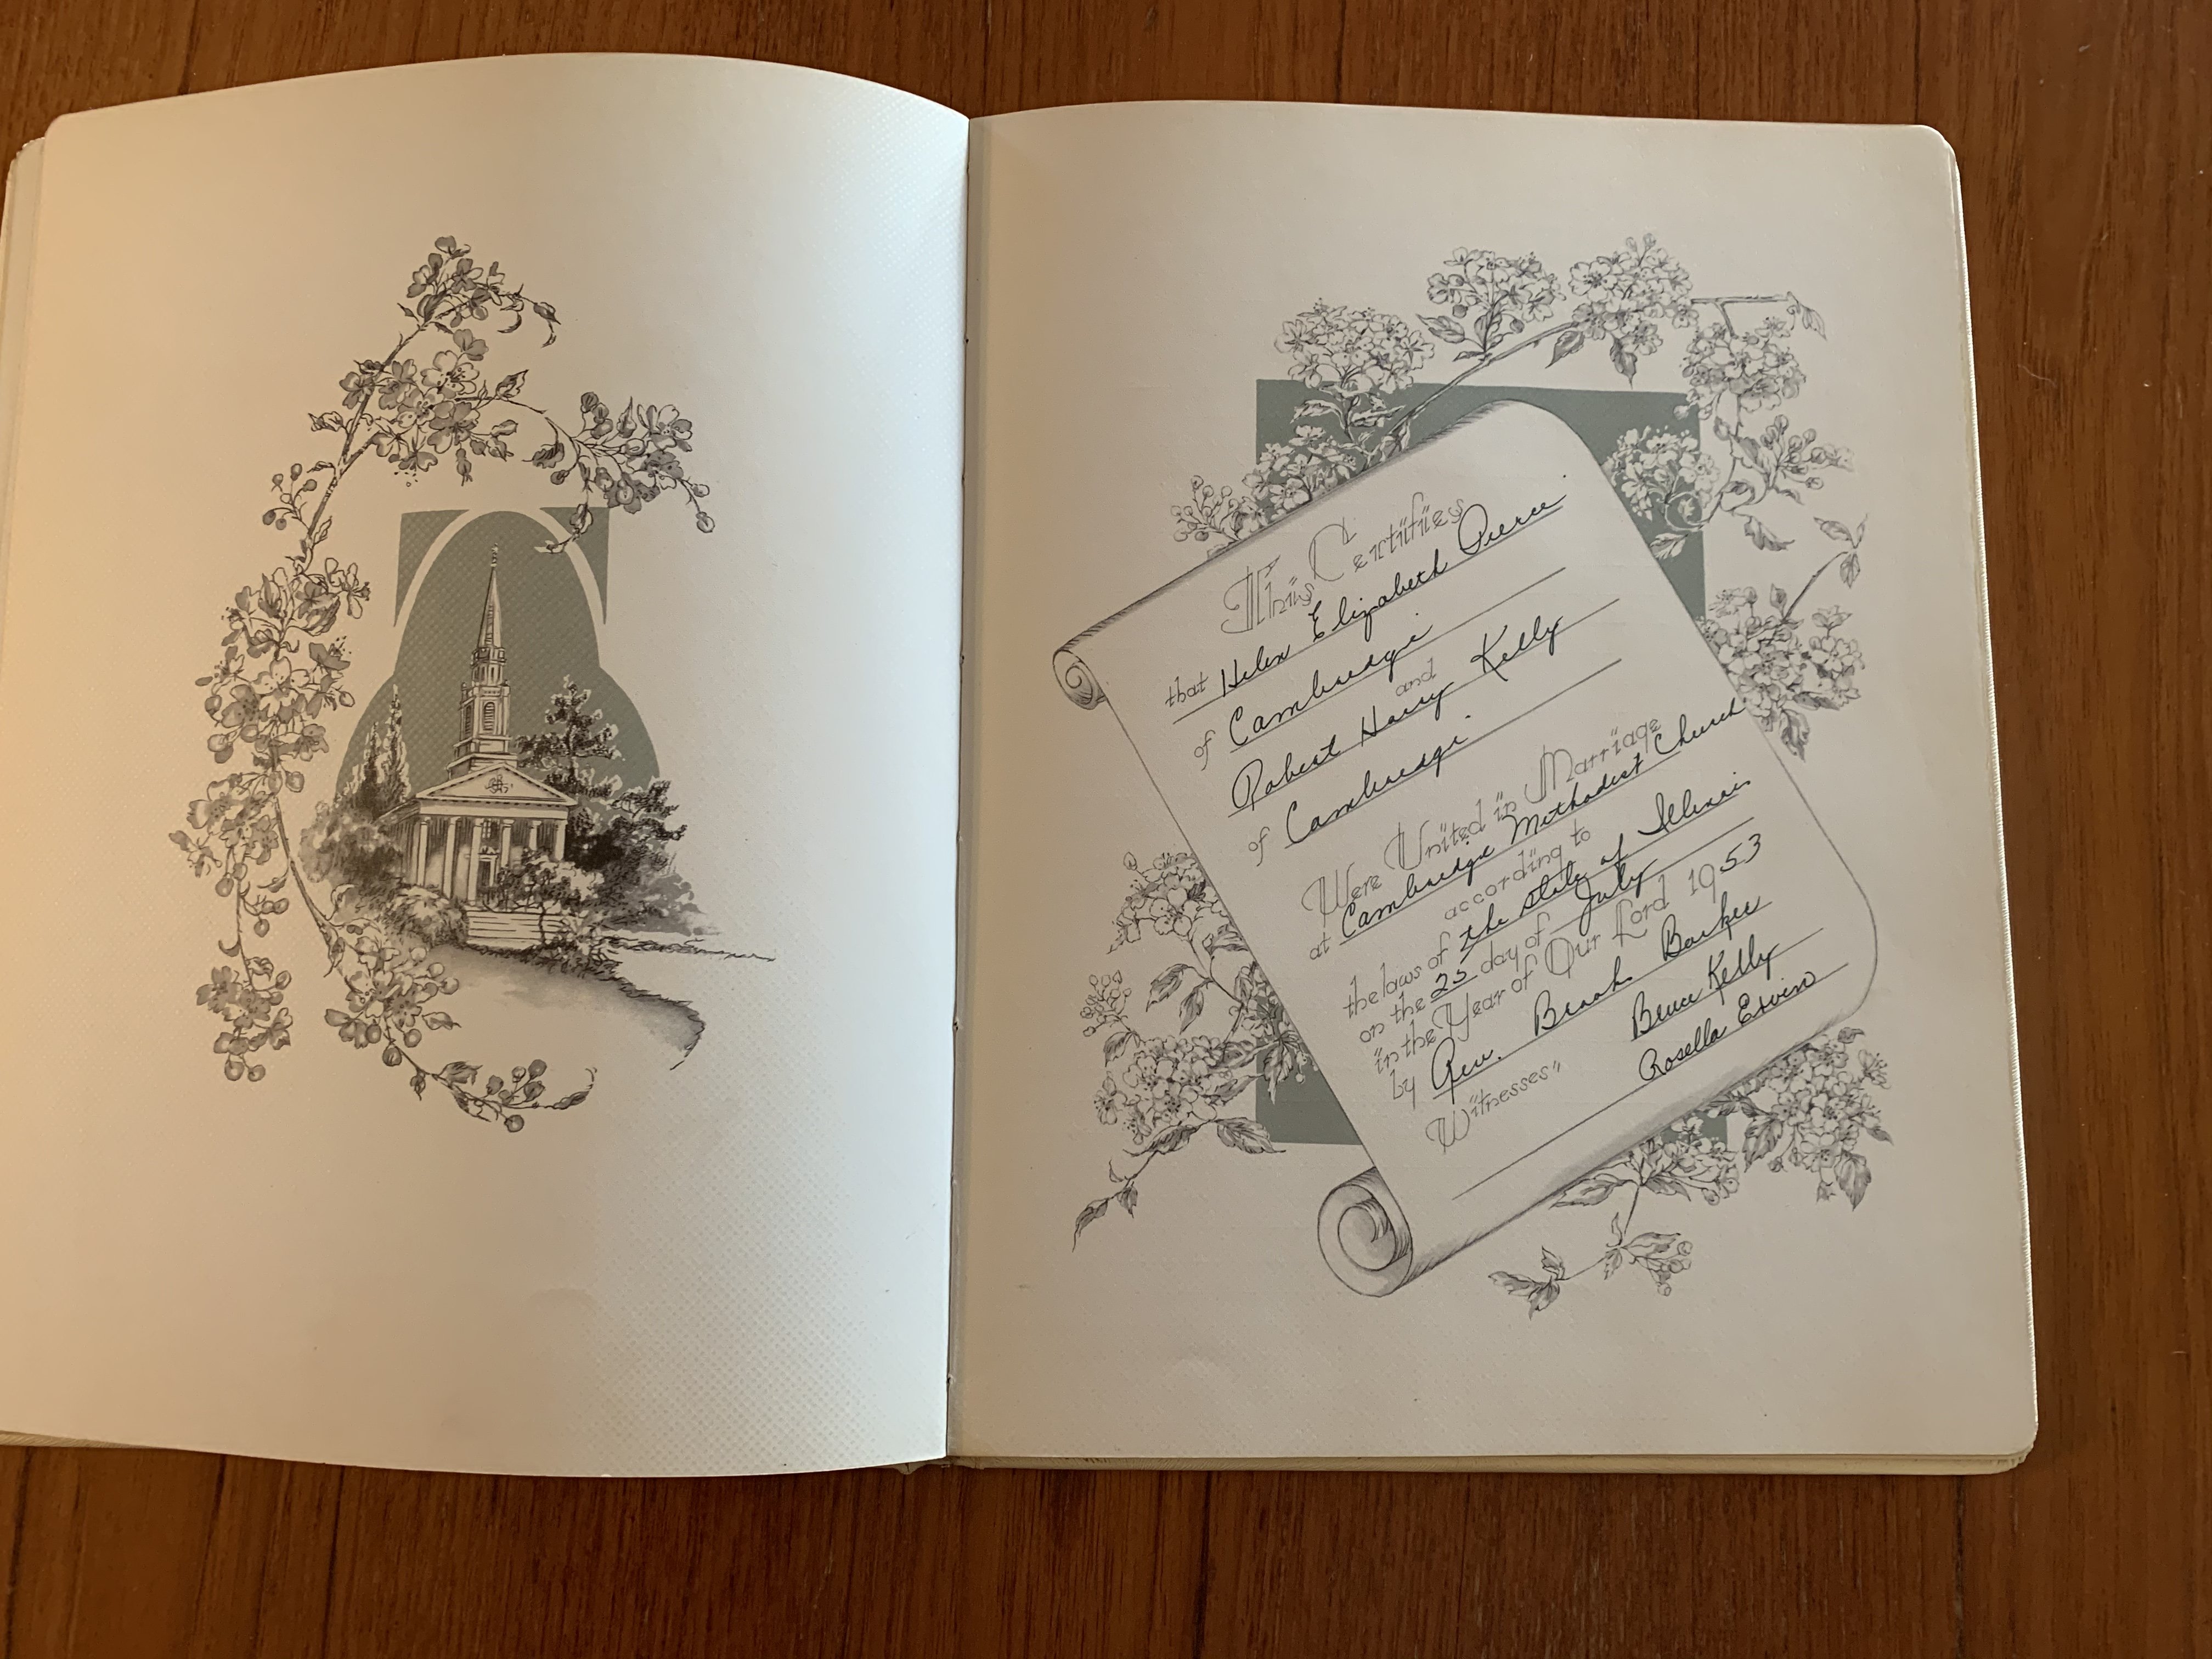 This Certifies
that Helen Elizabeth Pierce
of Cambridge
and
Robert Harry Kelly
of Cambridge
Were United in Marriage
at Cambridge Methodist Church
according to
the laws of the state of Illinois
on the 25 day of July
in the Year of Our Lord 1953
by Rev. Brook Barker
Witnesses: Bruce Kelly
Rosella Ervin